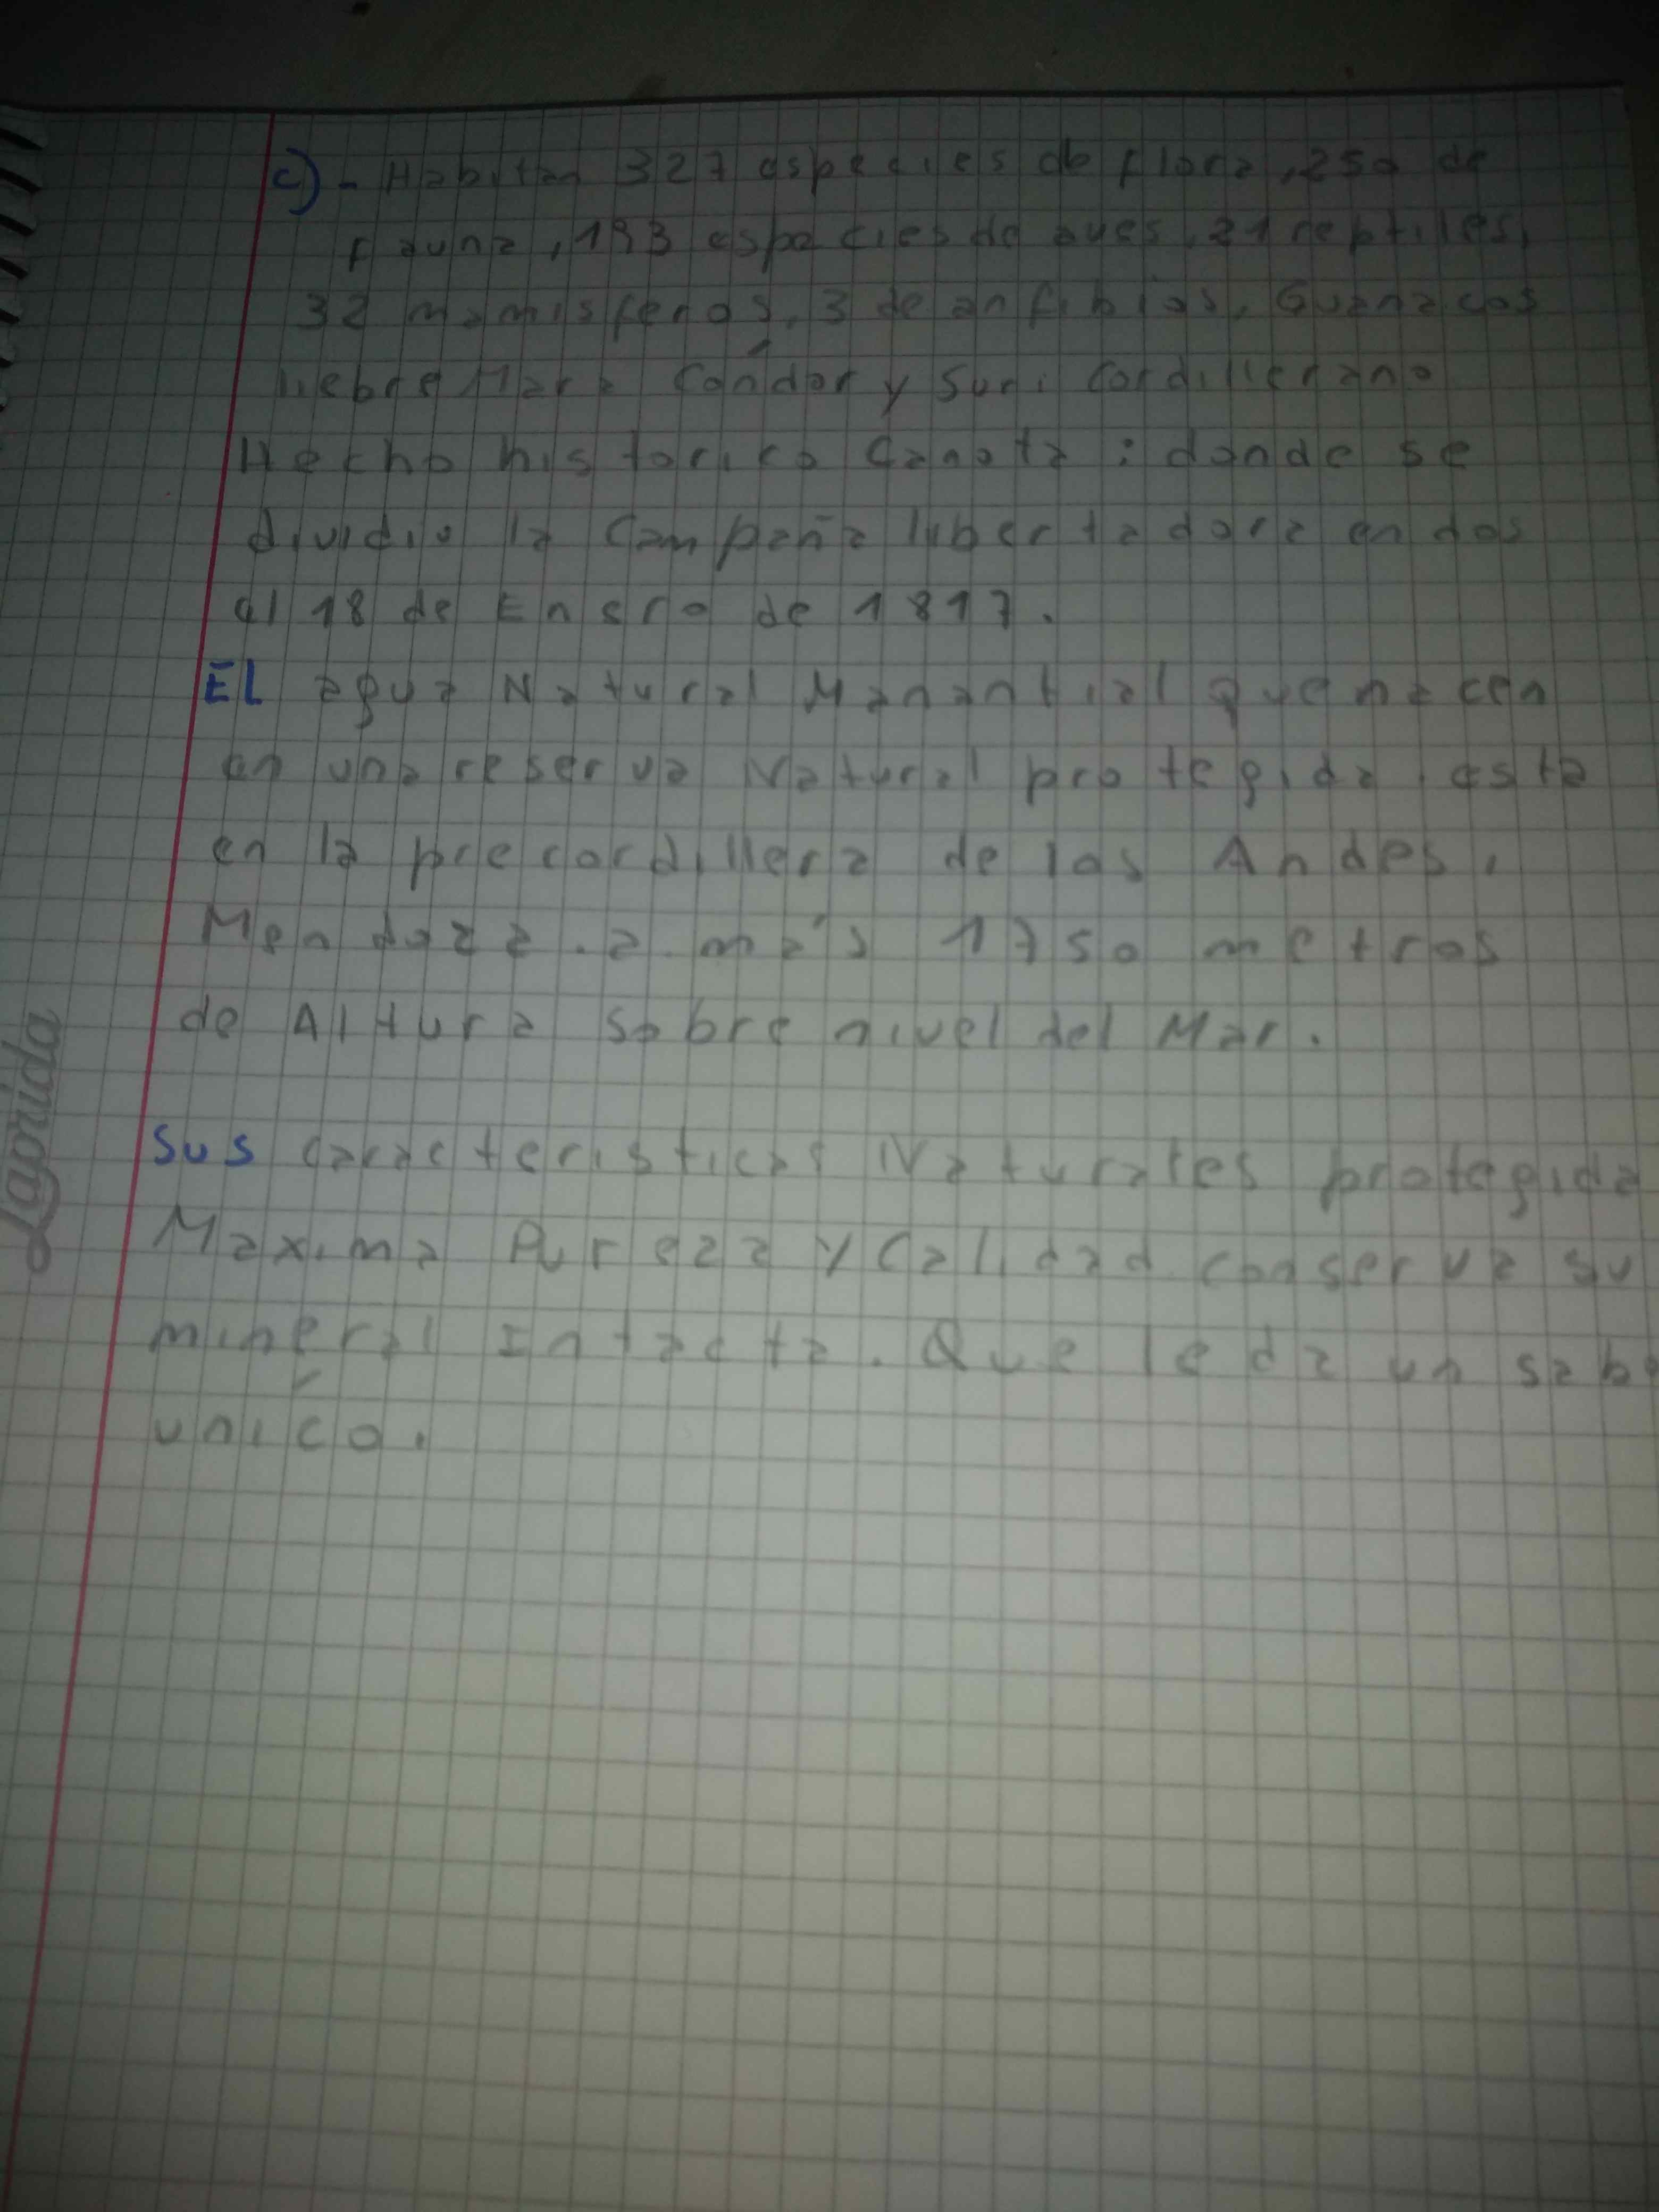 c)- Habitan 327 especies de flora, 250 de
fauna, 193 especies de aves, 21 reptiles,
32 mamisferos, 3 de anfibios, Guanacos
liebre Mara Cóndor y Suri Cordillerano
Hecho historico Canota : donde se
dividio la Campaña libertadora en dos
el 18 de Enero de 1817.
EL agua Natural Manantial que nacen
en una reserva Natural protegida, esta
en la precordillera de los Andes,
Mendoza. a más 1750 metros
de Altura sobre nivel del Mar.
Sus caracteristicas Naturales protegida
Maxima Pureza y Calidad conserva su
mineral Intacta. Que le da un sabo
único.
Lagorida